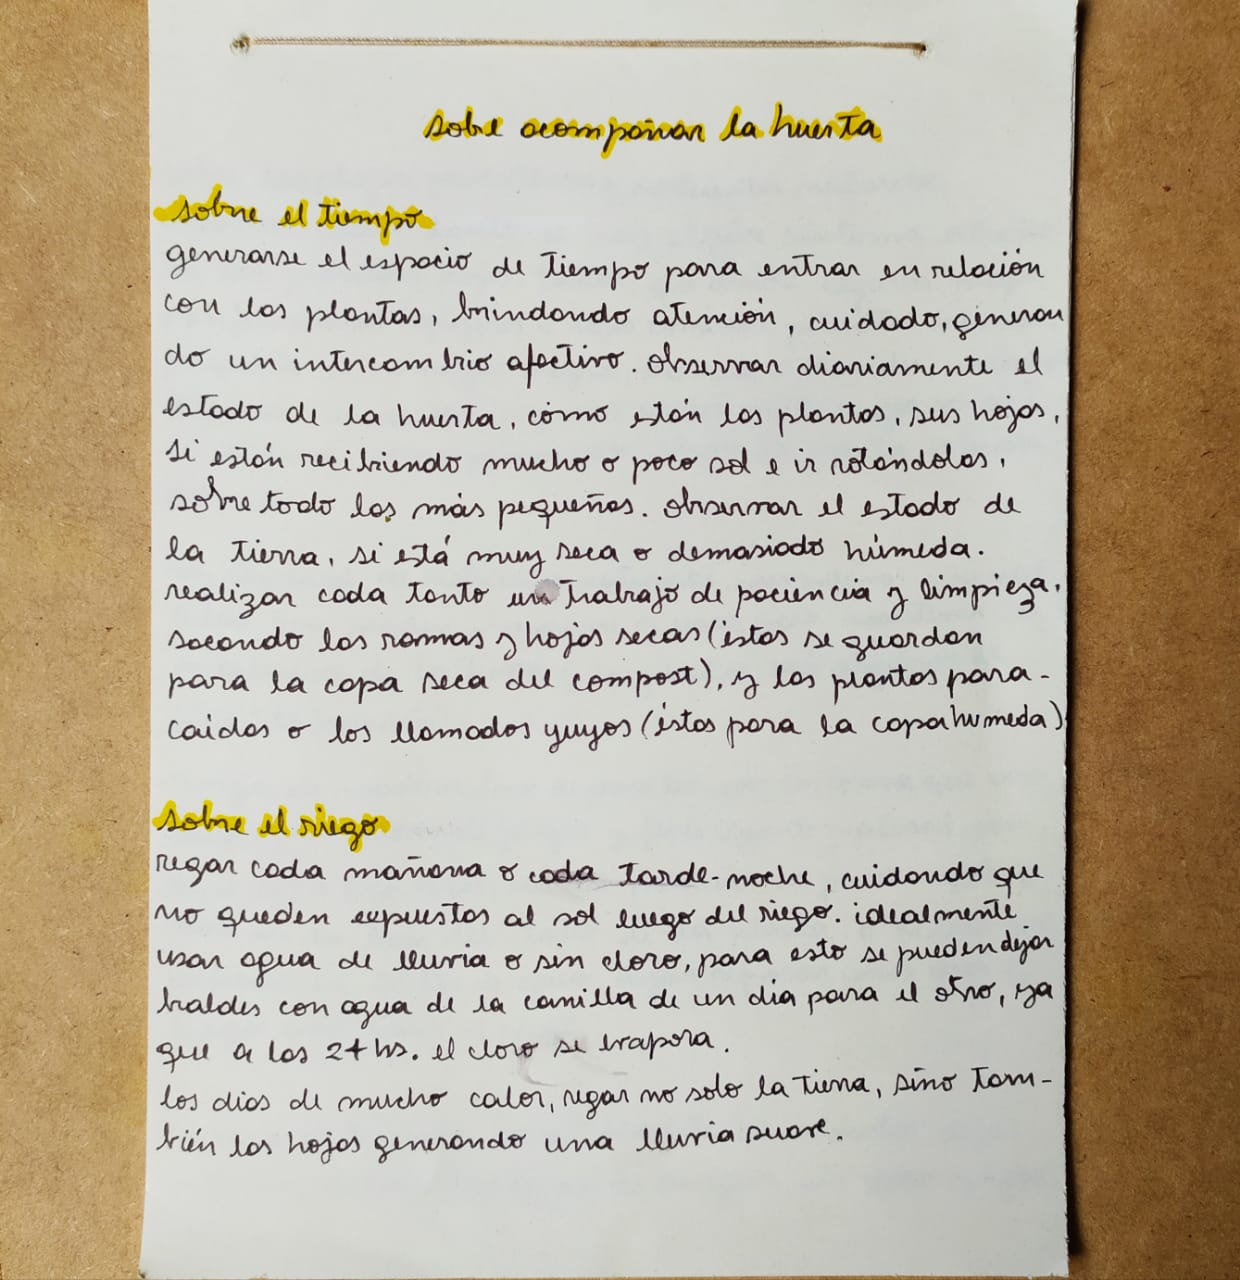 sobre acompañar la huerta
sobre el tiempo
generarse el espacio de tiempo para entrar en relación
con las plantas, brindando atención, cuidado, generan
do un intercambio afectivo. observar diariamente el
estado de la huerta, cómo están las plantas, sus hojas,
si están recibiendo mucho o poco sol e ir rotándolas,
sobre todo las más pequeñas. observar el estado de
la tierra, si está muy seca o demasiado húmeda.
realizar cada tanto un trabajo de paciencia y limpieza,
sacando las ramas y hojas secas (éstas se guardan
para la capa seca del compost), y las plantas para-
caídas o los llamados yuyos (éstas para la capa humeda)
sobre el riego
regar cada mañana o cada tarde-noche, cuidando que
no queden expuestas al sol luego del riego. idealmente
usar agua de lluvia o sin cloro, para esto se pueden dejar
baldes con agua de la canilla de un día para el otro, ya
que a las 24 hs. el cloro se evapora.
los días de mucho calor, regar no solo la tierra, sino tam-
bién las hojas generando una lluvia suave.